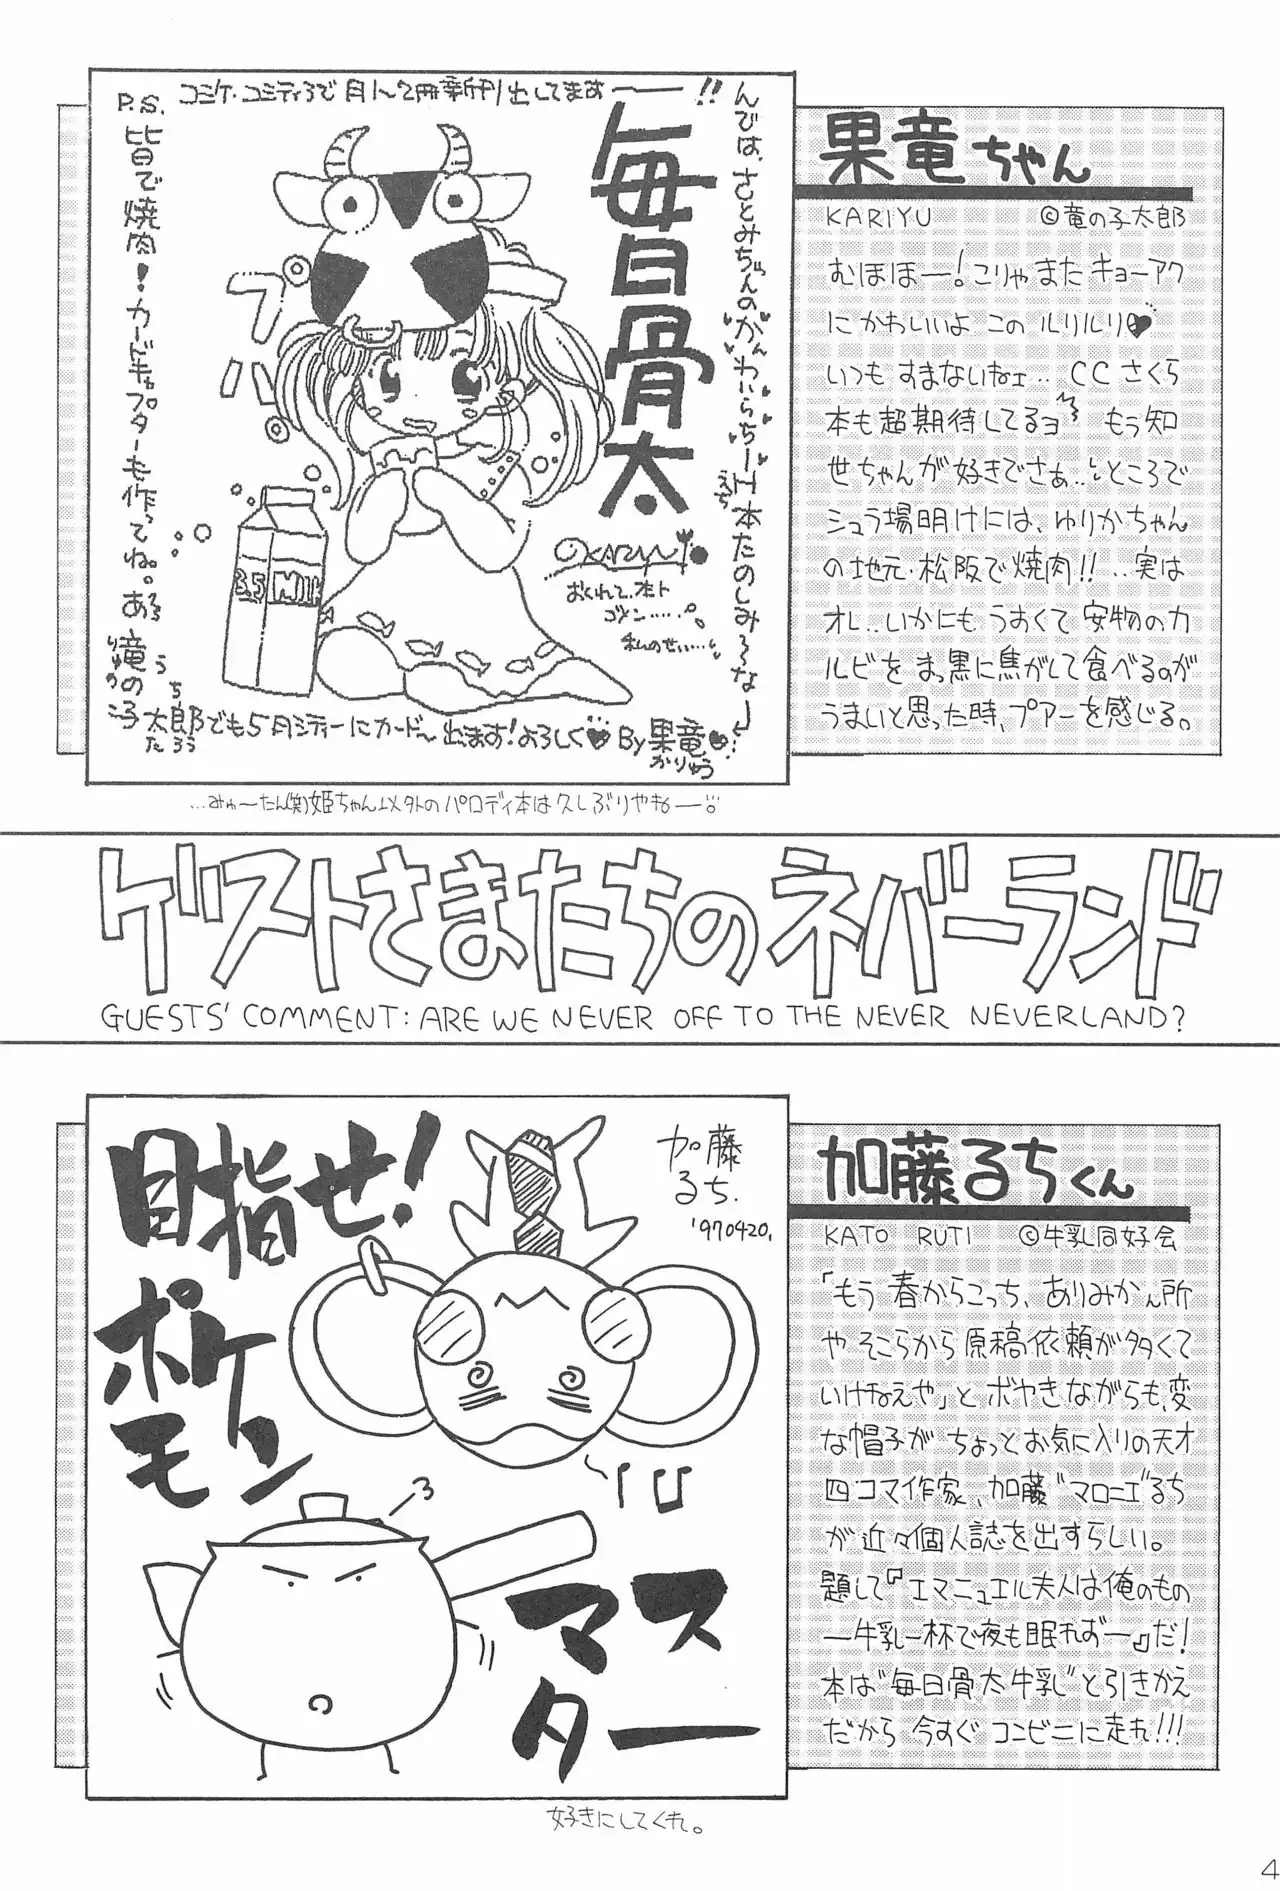 コミケ・コミティアで月1〜2冊新刊出してます——!!
毎日骨太
んでは、さとみちゃんのかんわいらちーH本たのしみ〜な
えち
P.S. 皆で焼肉!カードキャプターも作ってね。ある
竜の子太郎でも5月シティーにカード〜出ます!よろしく♥By果竜♥
りゅう
たろう
かりゅう
プハ
3.5 MILK
©KARIYU
おくれて、ホント
ゴメン……。
私のせい…
…みゅーたん(笑)姫ちゃん以外のパロディ本は久しぶりやねー
果竜ちゃん
KARIYU ©竜の子太郎
むほほー!こりゃまたキョーアク
にかわいいよこのルリルリ♥
いつもすまないねェ… CCさくら
本も超期待してるョ もう知
世ちゃんが好きでさぁ…ところで
シュラ場明けには、ゆりかちゃん
の地元・松阪で焼肉!!‥実は
オレ‥いかにもうすくて安物のカ
ルビをまっ黒に焦がして食べるのが
うまいと思った時、プアーを感じる。
ゲストさまたちのネバーランド
GUESTS' COMMENT: ARE WE NEVER OFF TO THE NEVER NEVERLAND?
目指せ!
ポケモン
マスター
加藤
るち.
'970420.
好きにしてくれ。
加藤るちくん
KATO RUTI ©牛乳同好会
「もう春からこっち、ありみかん所
やそこらから原稿依頼が多くて
いけねえや」とボヤきながらも、変
な帽子がちょっとお気に入りの天才
四コマ作家、加藤"マロニエ"るち
が近々個人誌を出すらしい。
題して『エマニュエル夫人は俺のもの
ー牛乳一杯で夜も眠れずー』だ!
本は"毎日骨太牛乳"と引きかえ
だから今すぐコンビニに走れ!!!
4